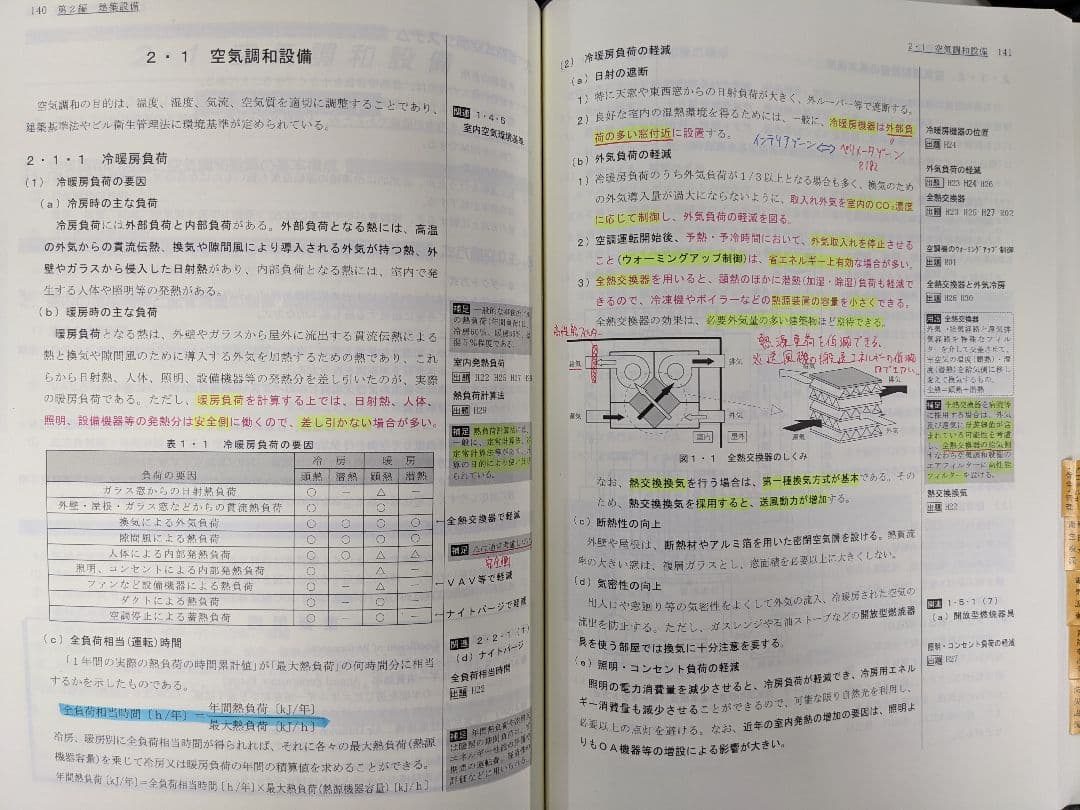 140 第2編 建築設備
2・1 空気調和設備
空気調和の目的は、温度、湿度、気流、空気質を適切に調整することであり、
建築基準法やビル衛生管理法に環境基準が定められている。
関連 1・4・6
室内空気環境基準
2・1・1 冷暖房負荷
(1) 冷暖房負荷の要因
(a) 冷房時の主な負荷
冷房負荷には外部負荷と内部負荷がある。外部負荷となる熱には、高温
の外気からの貫流伝熱、換気や隙間風により導入される外気が持つ熱、外
壁やガラスから侵入した日射熱があり、内部負荷となる熱には、室内で発
生する人体や照明等の発熱がある。
(b) 暖房時の主な負荷
暖房負荷となる熱は、外壁やガラスから屋外に流出する貫流伝熱による
熱と換気や隙間風のために導入する外気を加熱するための熱であり、これ
らから日射熱、人体、照明、設備機器等の発熱分を差し引いたのが、実際
の暖房負荷である。ただし、暖房負荷を計算する上では、日射熱、人体、
照明、設備機器等の発熱分は安全側に働くので、差し引かない場合が多い。
室内発熱負荷
出題 H22 H25 H27
熱負荷計算法
出題 H29
表1・1 冷暖房負荷の要因
冷房 暖房
負荷の要因 顕熱 潜熱 顕熱 潜熱
ガラス窓からの日射熱負荷 ○ − △ −
外壁・屋根・ガラス窓などからの貫流熱負荷 ○ − ○ −
換気による外気負荷 ○ ○ ○ ○
←全熱交換器で軽減
隙間風による熱負荷 ○ ○ ○ ○
人体による内部発熱負荷 ○ ○ △ △
照明、コンセントによる内部発熱負荷 ○ − △ −
ファンなど設備機器による熱負荷 ○ − △ −
←VAV等で軽減
ダクトによる熱負荷 ○ − ○ −
空調停止による蓄熱負荷 ○ − ○ −
←ナイトパージで軽減
安全側
(c) 全負荷相当(運転)時間
「1年間の実際の熱負荷の時間累計値」が「最大熱負荷」の何時間分に相当
するかを示したものである。
関連 2・2・1(1)
(d) ナイトパージ
全負荷相当時間
出題 H22
全負荷相当時間〔h/年〕=年間熱負荷〔kJ/年〕
最大熱負荷〔kJ/h〕
冷房、暖房別に全負荷相当時間が得られれば、それに各々の最大熱負荷(熱源
機器容量)を乗じて冷房又は暖房負荷の年間の積算値を求めることができる。
年間熱負荷〔kJ/年〕=全負荷相当時間〔h/年〕×最大熱負荷(熱源機器容量)〔kJ/h〕
2・1 空気調和設備 141
(2) 冷暖房負荷の軽減
(a) 日射の遮断
1) 特に天窓や東西窓からの日射負荷が大きく、外ルーバー等で遮断する。
2) 良好な室内の温熱環境を得るためには、一般に、冷暖房機器は外部負
荷の多い窓付近に設置する。
インテリアゾーン⇔ペリメータゾーン
冷暖房機器の位置
出題 H24
(b) 外気負荷の軽減
1) 冷暖房負荷のうち外気負荷が1/3以上となる場合も多く、換気のため
の外気導入量が過大にならないように、取入れ外気を室内のCO₂濃度
に応じて制御し、外気負荷の軽減を図る。
外気負荷の軽減
出題 H23 H24 H26
全熱交換器
出題 H23 H25 H27 R02
2) 空調運転開始後、予熱・予冷時間において、外気取入れを停止させる
こと(ウォーミングアップ制御)は、省エネルギー上有効な場合が多い。
空調機のウォーミングアップ制御
出題 R01
3) 全熱交換器を用いると、顕熱のほかに潜熱(加湿・除湿)負荷も軽減で
きるので、冷凍機やボイラーなどの熱源装置の容量を小さくできる。
全熱交換器の効果は、必要外気量の多い建築物ほど期待できる。
全熱交換器と外気冷房
出題 H26 H30
熱源負荷を低減できる。
給気
排気
還気
外気
室内
屋外
給気
排気
還気
外気
図1・1 全熱交換器のしくみ
なお、熱交換換気を行う場合は、第一種換気方式が基本である。そ
のため、熱交換換気を採用すると、送風動力が増加する。
熱交換換気
出題 H22
(c) 断熱性の向上
外壁や屋根は、断熱材やアルミ箔を用いた密閉空気層を設ける。熱貫流
率の大きい窓は、複層ガラスとし、窓面積を必要以上に大きくしない。
(d) 気密性の向上
出入口や窓廻り等の気密性をよくして外気の流入、冷暖房された空気の
流出を防止する。ただし、ガスレンジや石油ストーブなどの開放型燃焼器
具を使う部屋では換気に十分注意を要する。
関連 1・5・1(7)
(a) 開放型燃焼器具
(e) 照明・コンセント負荷の軽減
照明の電力消費量を減少させると、冷房負荷が軽減でき、冷房用エネル
ギー消費量も減少させることができるので、可能な限り自然光を利用し、
必要以上の点灯を避ける。なお、近年の室内発熱の増加の要因は、照明よ
りもOA機器等の増設による影響が大きい。
照明・コンセント負荷の軽減
出題 H27